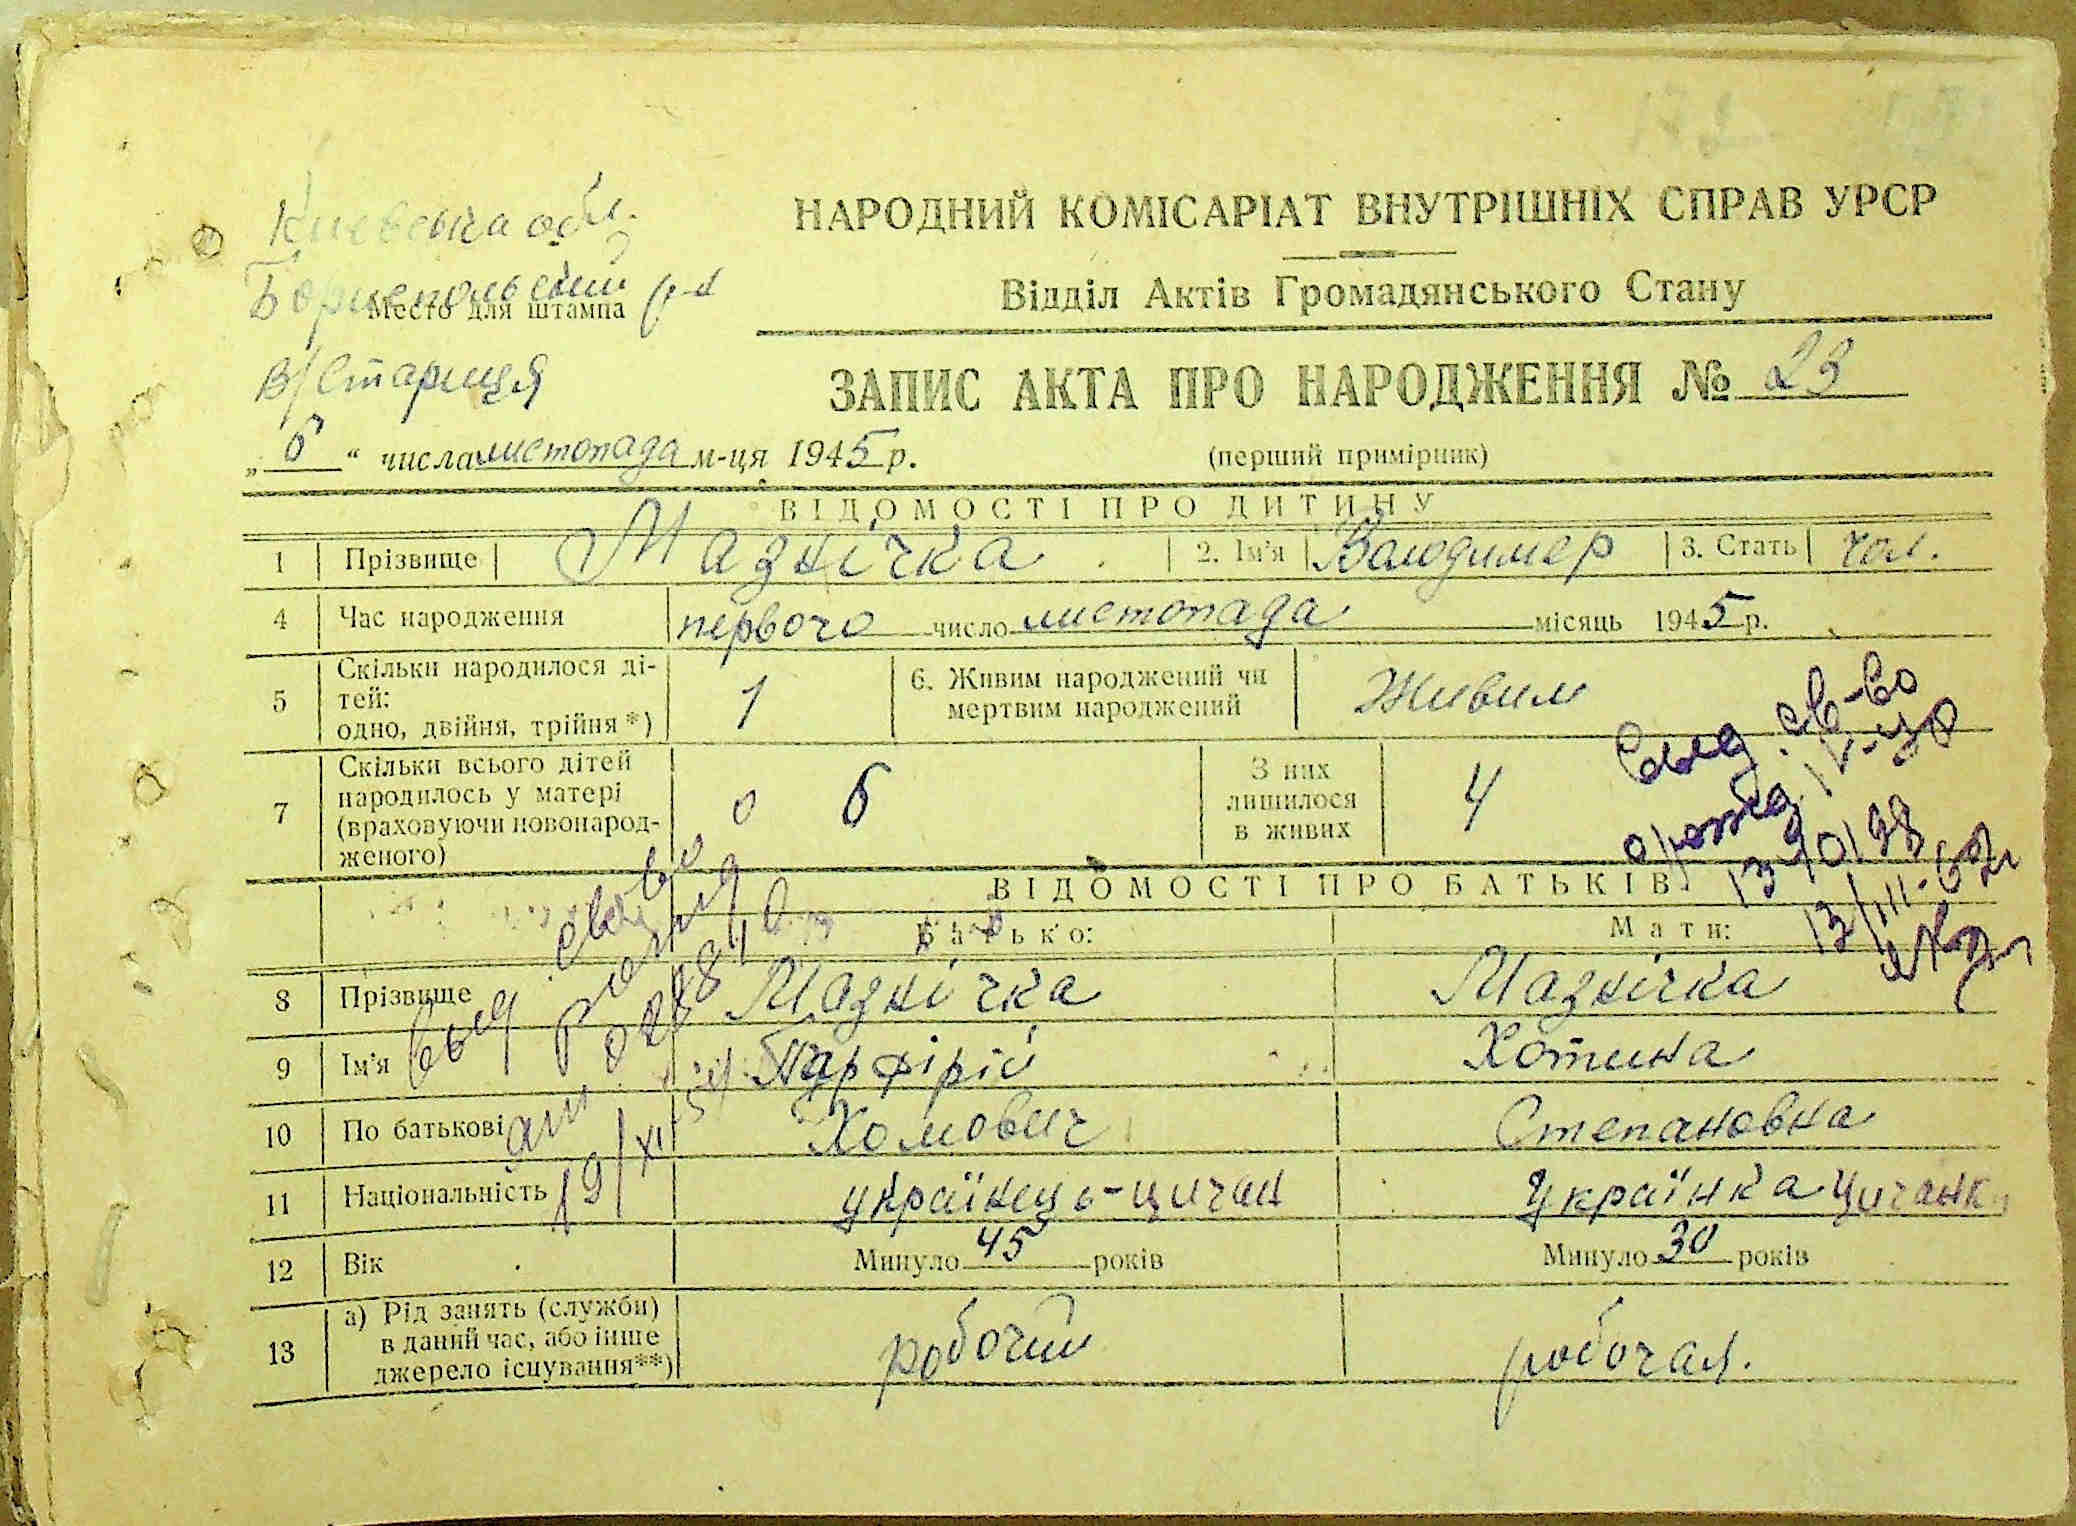 Київська обл.
Бориспольский р-н
Место для штампа
в/Стариця
НАРОДНИЙ КОМІСАРІАТ ВНУТРІШНІХ СПРАВ УРСР
Відділ Актів Громадянського Стану
ЗАПИС АКТА ПРО НАРОДЖЕННЯ № 23
„6“ числа листопада м-ця 1945 р.
(перший примірник)
ВІДОМОСТІ ПРО ДИТИНУ
1 Прізвище Мазнічка 2. Ім'я Володимер 3. Стать чол.
4 Час народження первого число листопада місяць 1945 р.
5 Скільки народилося ді-
тей:
одно, двійня, трійня *) 1
6. Живим народжений чи
мертвим народжений Живим
7 Скільки всього дітей
народилось у матері
(враховуючи новонарод-
женого) 6
З них
лишилося
в живих 4
Выд. св-во
о рожд.
13/III-62
ВІДОМОСТІ ПРО БАТЬКІВ
Батько: Мати:
8 Прізвище Мазнічка Мазнічка
9 Ім'я Парфірій Хотина
10 По батькові Хомович Степановна
11 Національність українець-циган Українка Циганка
12 Вік Минуло 45 років Минуло 30 років
13 а) Рід занять (служби)
в даний час, або інше
джерело існування**) робочий робочая.
Выд
19/XI